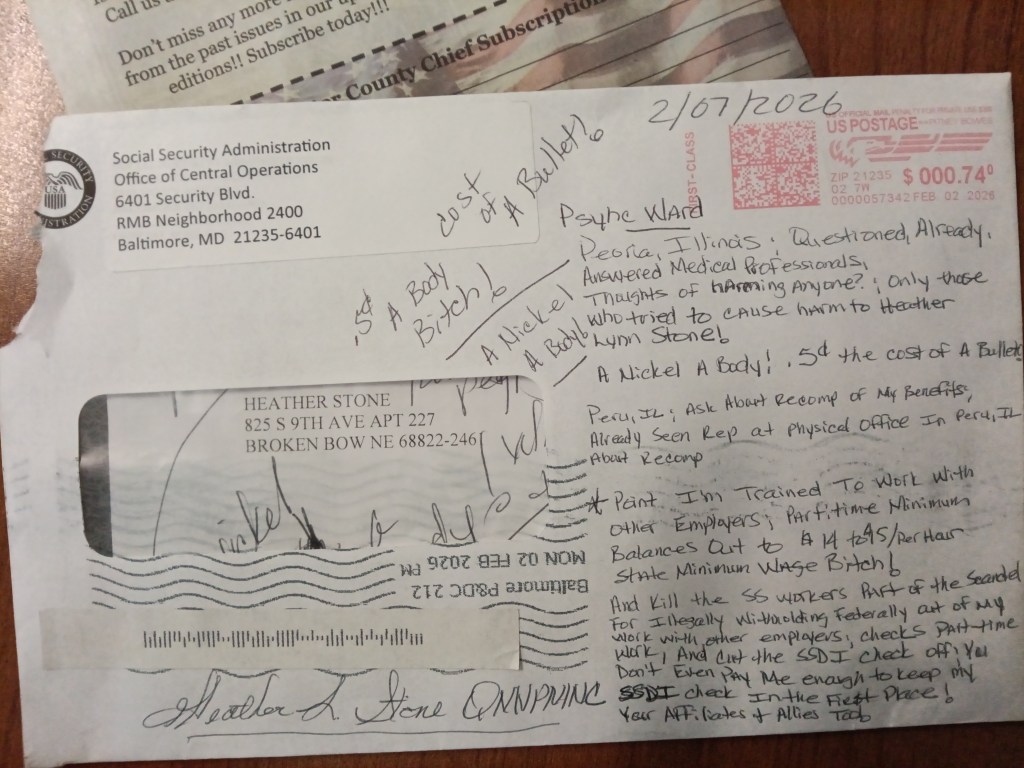 Call us
Don't miss any more
from the past issues in our
editions!! Subscribe today!!!
County Chief Subscription
2/07/2026
Social Security Administration
Office of Central Operations
6401 Security Blvd.
RMB Neighborhood 2400
Baltimore, MD 21235-6401
USA
FIRST-CLASS
US POSTAGE
ZIP 21235 $ 000.74⁰
02 7W
0000057342 FEB 02 2026
Cost
of
A Bullet!
.5¢
A Body
Bitch!
A Nickel
A Body!
Psyhc Ward
Peoria, Illinois; Questioned, Already,
Answered Medical Professionals,
Thoughts of harming Anyone?; Only those
who tried to cause harm to Heather
Lynn Stone!
A Nickel A Body! .5¢ the cost of A Bullet
Peru, IL; Ask About Recomp of My Benefits;
Already Seen Rep at Physical Office In Peru, IL
About Recomp
* Point I'm Trained To Work With
Other Employers; Part-time Minimum
Balances Out to $14 to 15/Per Hour
State Minimum Wage Bitch!
And Kill the SS workers Part of the Scandel
For Illegally Witholding Federally out of My
Work with other employers, checks Part-time
Work, And Cut the SSDI check off; You
Don't Even Pay Me enough to keep my
SSDI check In the First Place!
Your Affiliates & Allies Too!
HEATHER STONE
825 S 9TH AVE APT 227
BROKEN BOW NE 68822-246
Nickel a
Baltimore P&DC 212
MON 02 FEB 2026 PM
Heather L Stone